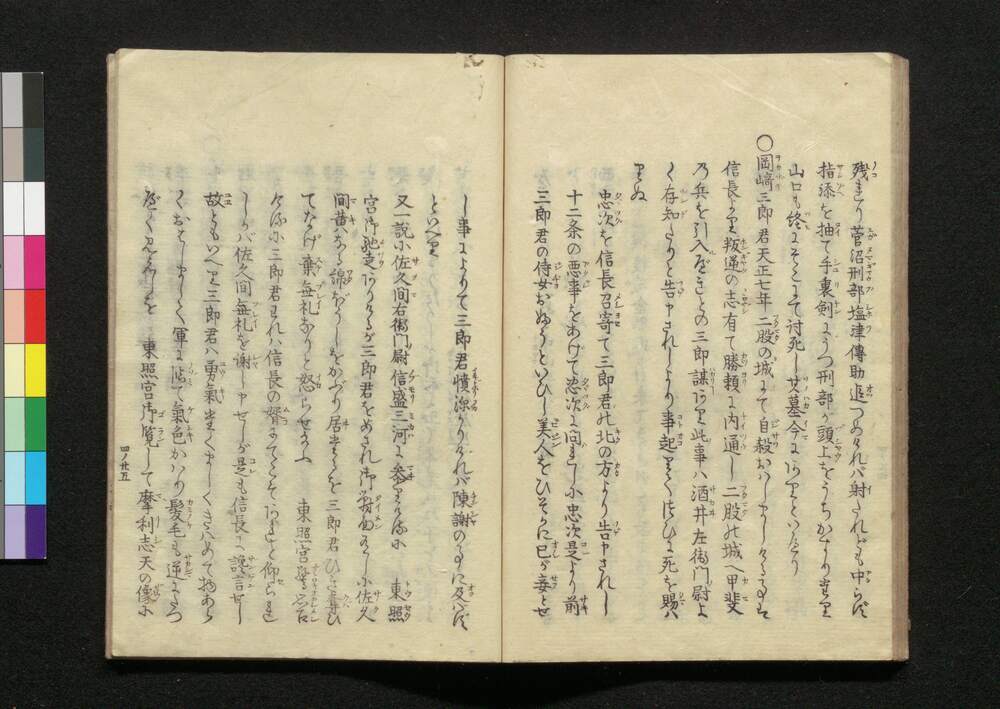 残れり菅沼刑部塩津傳助追つめければ射たれども中らず
指添を抽て手裏剣にうつ刑部が頭上をうちかすりまいり
山口も終にそこにて討死し其墓今にありといへり
〇岡﨑三郎君天正七年二股の城にて自殺おはしましけるゆゑは
信長に叛逆の志有て勝頼に内通し二股の城へ甲斐
乃兵を引入べきとの三郎謀あり此事ハ酒井左衛門尉よ
く存知たりと告申されしより事起りてつひに死を賜ハ
りぬ
忠次を信長召寄て三郎君れ北の方より告申されし
十二条の悪事をあげて忠次に問れしに忠次是より前
三郎君の侍女おふうといひし美人をひそかに己が妾とせ
し事によりて三郎君憤深かりければ陳謝の事に及バず
といへり
又一説小佐久間右衛門尉信盛三河に参りける小 東照
宮御馳走ありけるが三郎君をめされ御対面有し小佐久
間黄なる綿ぼうしをかぶり居たるを三郎君ひき奪ひ
てなげ棄無礼なりと怒らせ給ふ 東照宮
ける小三郎君われハ信長の婿にてこそあれと仰られ
しかバ佐久間無礼を謝し申せしが是も信長へ讒言せし
故ともいへり三郎君ハ勇氣たくましくきハめて物あら
くおはしまして軍に臨て氣色かハり髪毛も逆にたつ
べく見えしを 東照宮御覧して摩利志天の像小
四ノ廿五